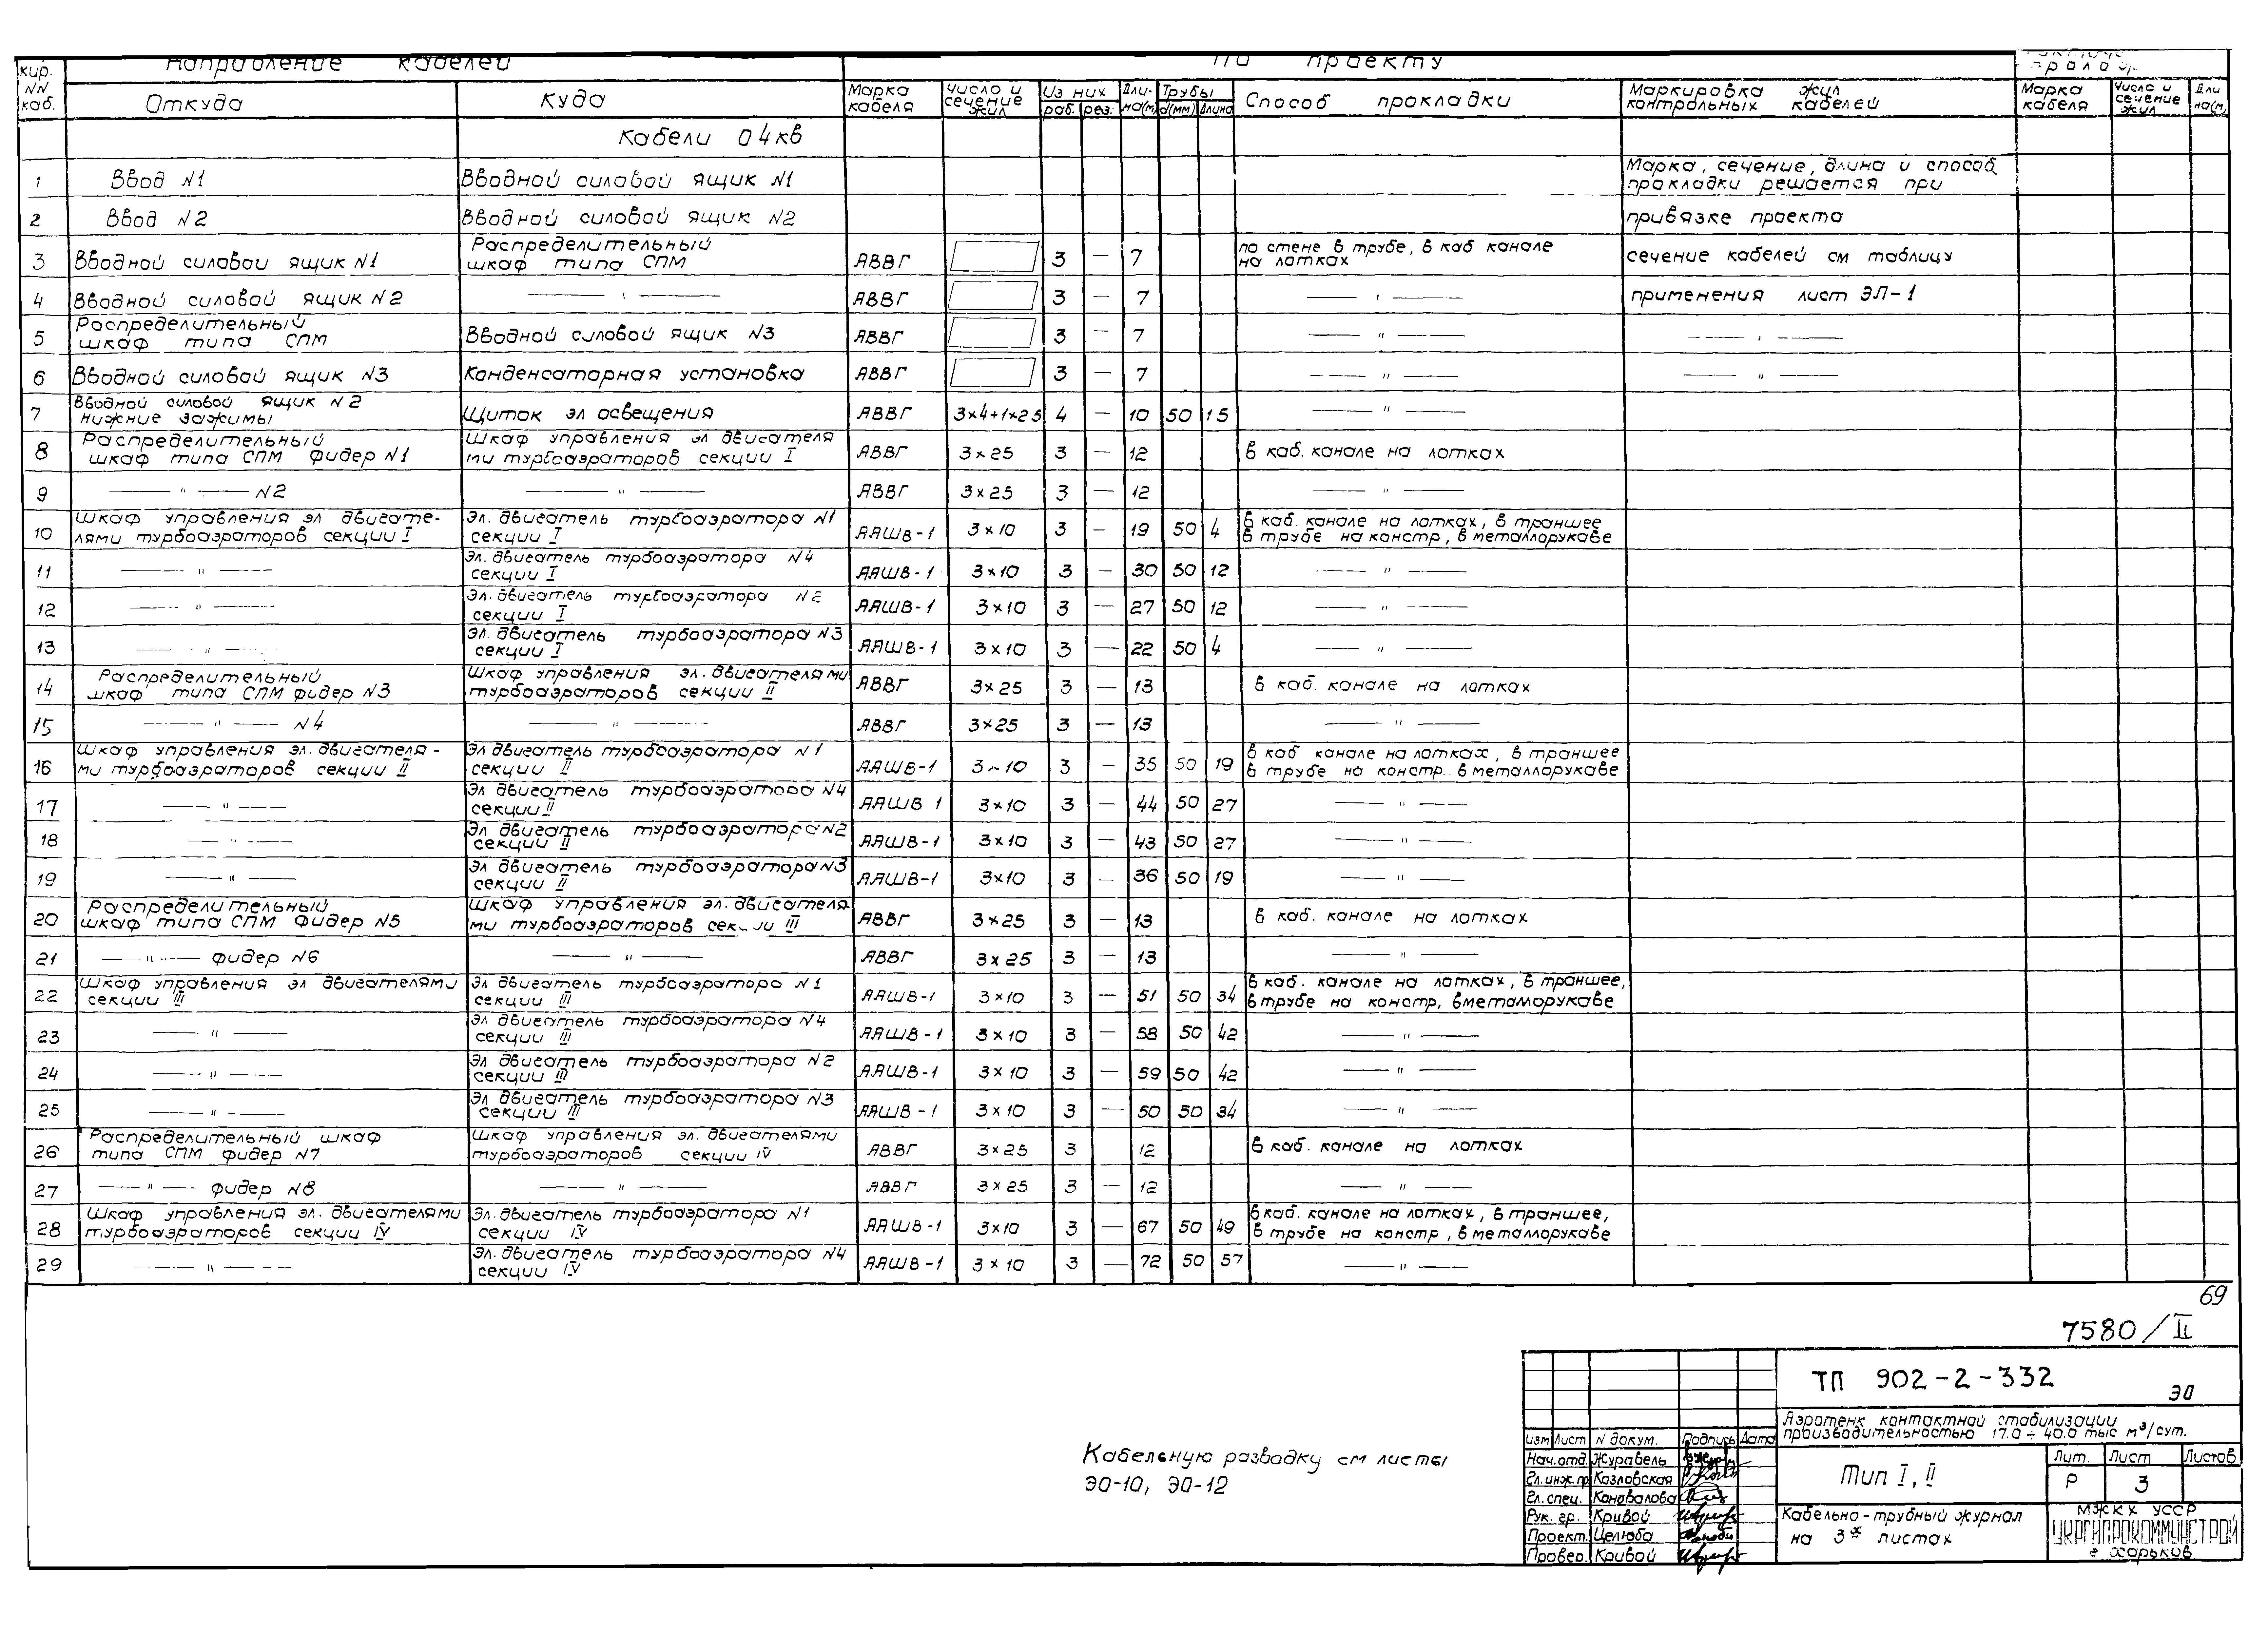 Направление кабелей
По проекту
кир. NN каб.
Откуда
Куда
Марка кабеля
Число и сечение жил.
Из них
раб. рез.
Дли-на(м)
Трубы
d(мм) Длина
Способ прокладки
Маркировка жил контрольных кабелей
Марка кабеля
Число и сечение жил
Дли на(м)
Кабели 04кв
1 Ввод N1 Вводной силовой ящик N1 Марка, сечение, длина и способ прокладки решается при
2 Ввод N2 Вводной силовой ящик N2 привязке проекта
3 Вводной силовой ящик N1 Распределительный шкаф типа СПМ АВВГ 3 — 7 по стене в трубе, в каб канале на лотках сечение кабелей см таблицу
4 Вводной силовой ящик N2 — " — АВВГ 3 — 7 — " — применения лист ЭЛ-1
5 Распределительный шкаф типа СПМ Вводной силовой ящик N3 АВВГ 3 — 7 — " — — " —
6 Вводной силовой ящик N3 Конденсаторная установка АВВГ 3 — 7 — " — — " —
7 Вводной силовой ящик N2 нижние зажимы Щиток эл освещения АВВГ 3×4+1×25 4 — 10 50 15 — " —
8 Распределительный шкаф типа СПМ фидер N1 Шкаф управления эл двигателя ми турбоаэраторов секции I АВВГ 3×25 3 — 12 в каб. канале на лотках
9 — " — N2 — " — АВВГ 3×25 3 — 12 — " —
10 Шкаф управления эл двигате-лями турбоаэраторов секции I Эл. двигатель турбоаэратора N1 секции I ААШВ-1 3×10 3 — 19 50 4 в каб. канале на лотках, в траншее в трубе на констр, в металлорукаве
11 — " — Эл. двигатель турбоаэратора N4 секции I ААШВ-1 3×10 3 — 30 50 12 — " —
12 — " — Эл. двигатель турбоаэратора N2 секции I ААШВ-1 3×10 3 — 27 50 12 — " —
13 — " — Эл. двигатель турбоаэратора N3 секции I ААШВ-1 3×10 3 — 22 50 4 — " —
14 Распределительный шкаф типа СПМ фидер N3 Шкаф управления эл. двигателями турбоаэраторов секции II АВВГ 3×25 3 — 13 в каб. канале на лотках
15 — " — N4 — " — АВВГ 3×25 3 — 13 — " —
16 Шкаф управления эл. двигателя-ми турбоаэраторов секции II Эл двигатель турбоаэратора N1 секции II ААШВ-1 3×10 3 — 35 50 19 в каб. канале на лотках, в траншее в трубе на констр.. в металлорукаве
17 — " — Эл двигатель турбоаэратора N4 секции II ААШВ 1 3×10 3 — 44 50 27 — " —
18 — " — Эл двигатель турбоаэратора N2 секции II ААШВ-1 3×10 3 — 43 50 27 — " —
19 — " — Эл двигатель турбоаэратора N3 секции II ААШВ-1 3×10 3 — 36 50 19 — " —
20 Распределительный шкаф типа СПМ фидер N5 Шкаф управления эл. двигателя ми турбоаэраторов секции III АВВГ 3×25 3 — 13 в каб. канале на лотках
21 — " — фидер N6 — " — АВВГ 3×25 3 — 13 — " —
22 Шкаф управления эл двигателями секции III Эл двигатель турбоаэратора N1 секции III ААШВ-1 3×10 3 — 51 50 34 в каб. канале на лотках, в траншее, в трубе на констр, в металлорукаве
23 — " — Эл двигатель турбоаэратора N4 секции III ААШВ-1 3×10 3 — 58 50 42 — " —
24 — " — Эл двигатель турбоаэратора N2 секции III ААШВ-1 3×10 3 — 59 50 42 — " —
25 — " — Эл двигатель турбоаэратора N3 секции III ААШВ-1 3×10 3 — 50 50 34 — " —
26 Распределительный шкаф типа СПМ фидер N7 Шкаф управления эл. двигателями турбоаэраторов секции IV АВВГ 3×25 3 12 в каб. канале на лотках
27 — " — фидер N8 — " — АВВГ 3×25 3 — 12 — " —
28 Шкаф управления эл. двигателями турбоаэраторов секции IV Эл. двигатель турбоаэратора N1 секции IV ААШВ-1 3×10 3 — 67 50 49 в каб. канале на лотках, в траншее, в трубе на констр, в металлорукаве
29 — " — Эл. двигатель турбоаэратора N4 секции IV ААШВ-1 3×10 3 — 72 50 57 — " —
69
7580/II
Кабельную разводку см листы
ЭО-10, ЭО-12
ТП 902-2-332
ЭО
Аэротенк контактной стабилизации
производительностью 17.0÷40.0 тыс м³/сут.
Изм Лист N докум. Подпись Дата
Нач.отд. Журавель
Гл.инж.пр Козловская
Гл.спец. Коновалова
Рук. гр. Кривой
Проект. Целюба
Провер. Кривой
Тип I, II
Лит. Лист Листов
Р 3
Кабельно-трубный журнал
на 3х листах
МЖКХ УССР
УКРГИПРОКОММУНСТРОЙ
г Харьков